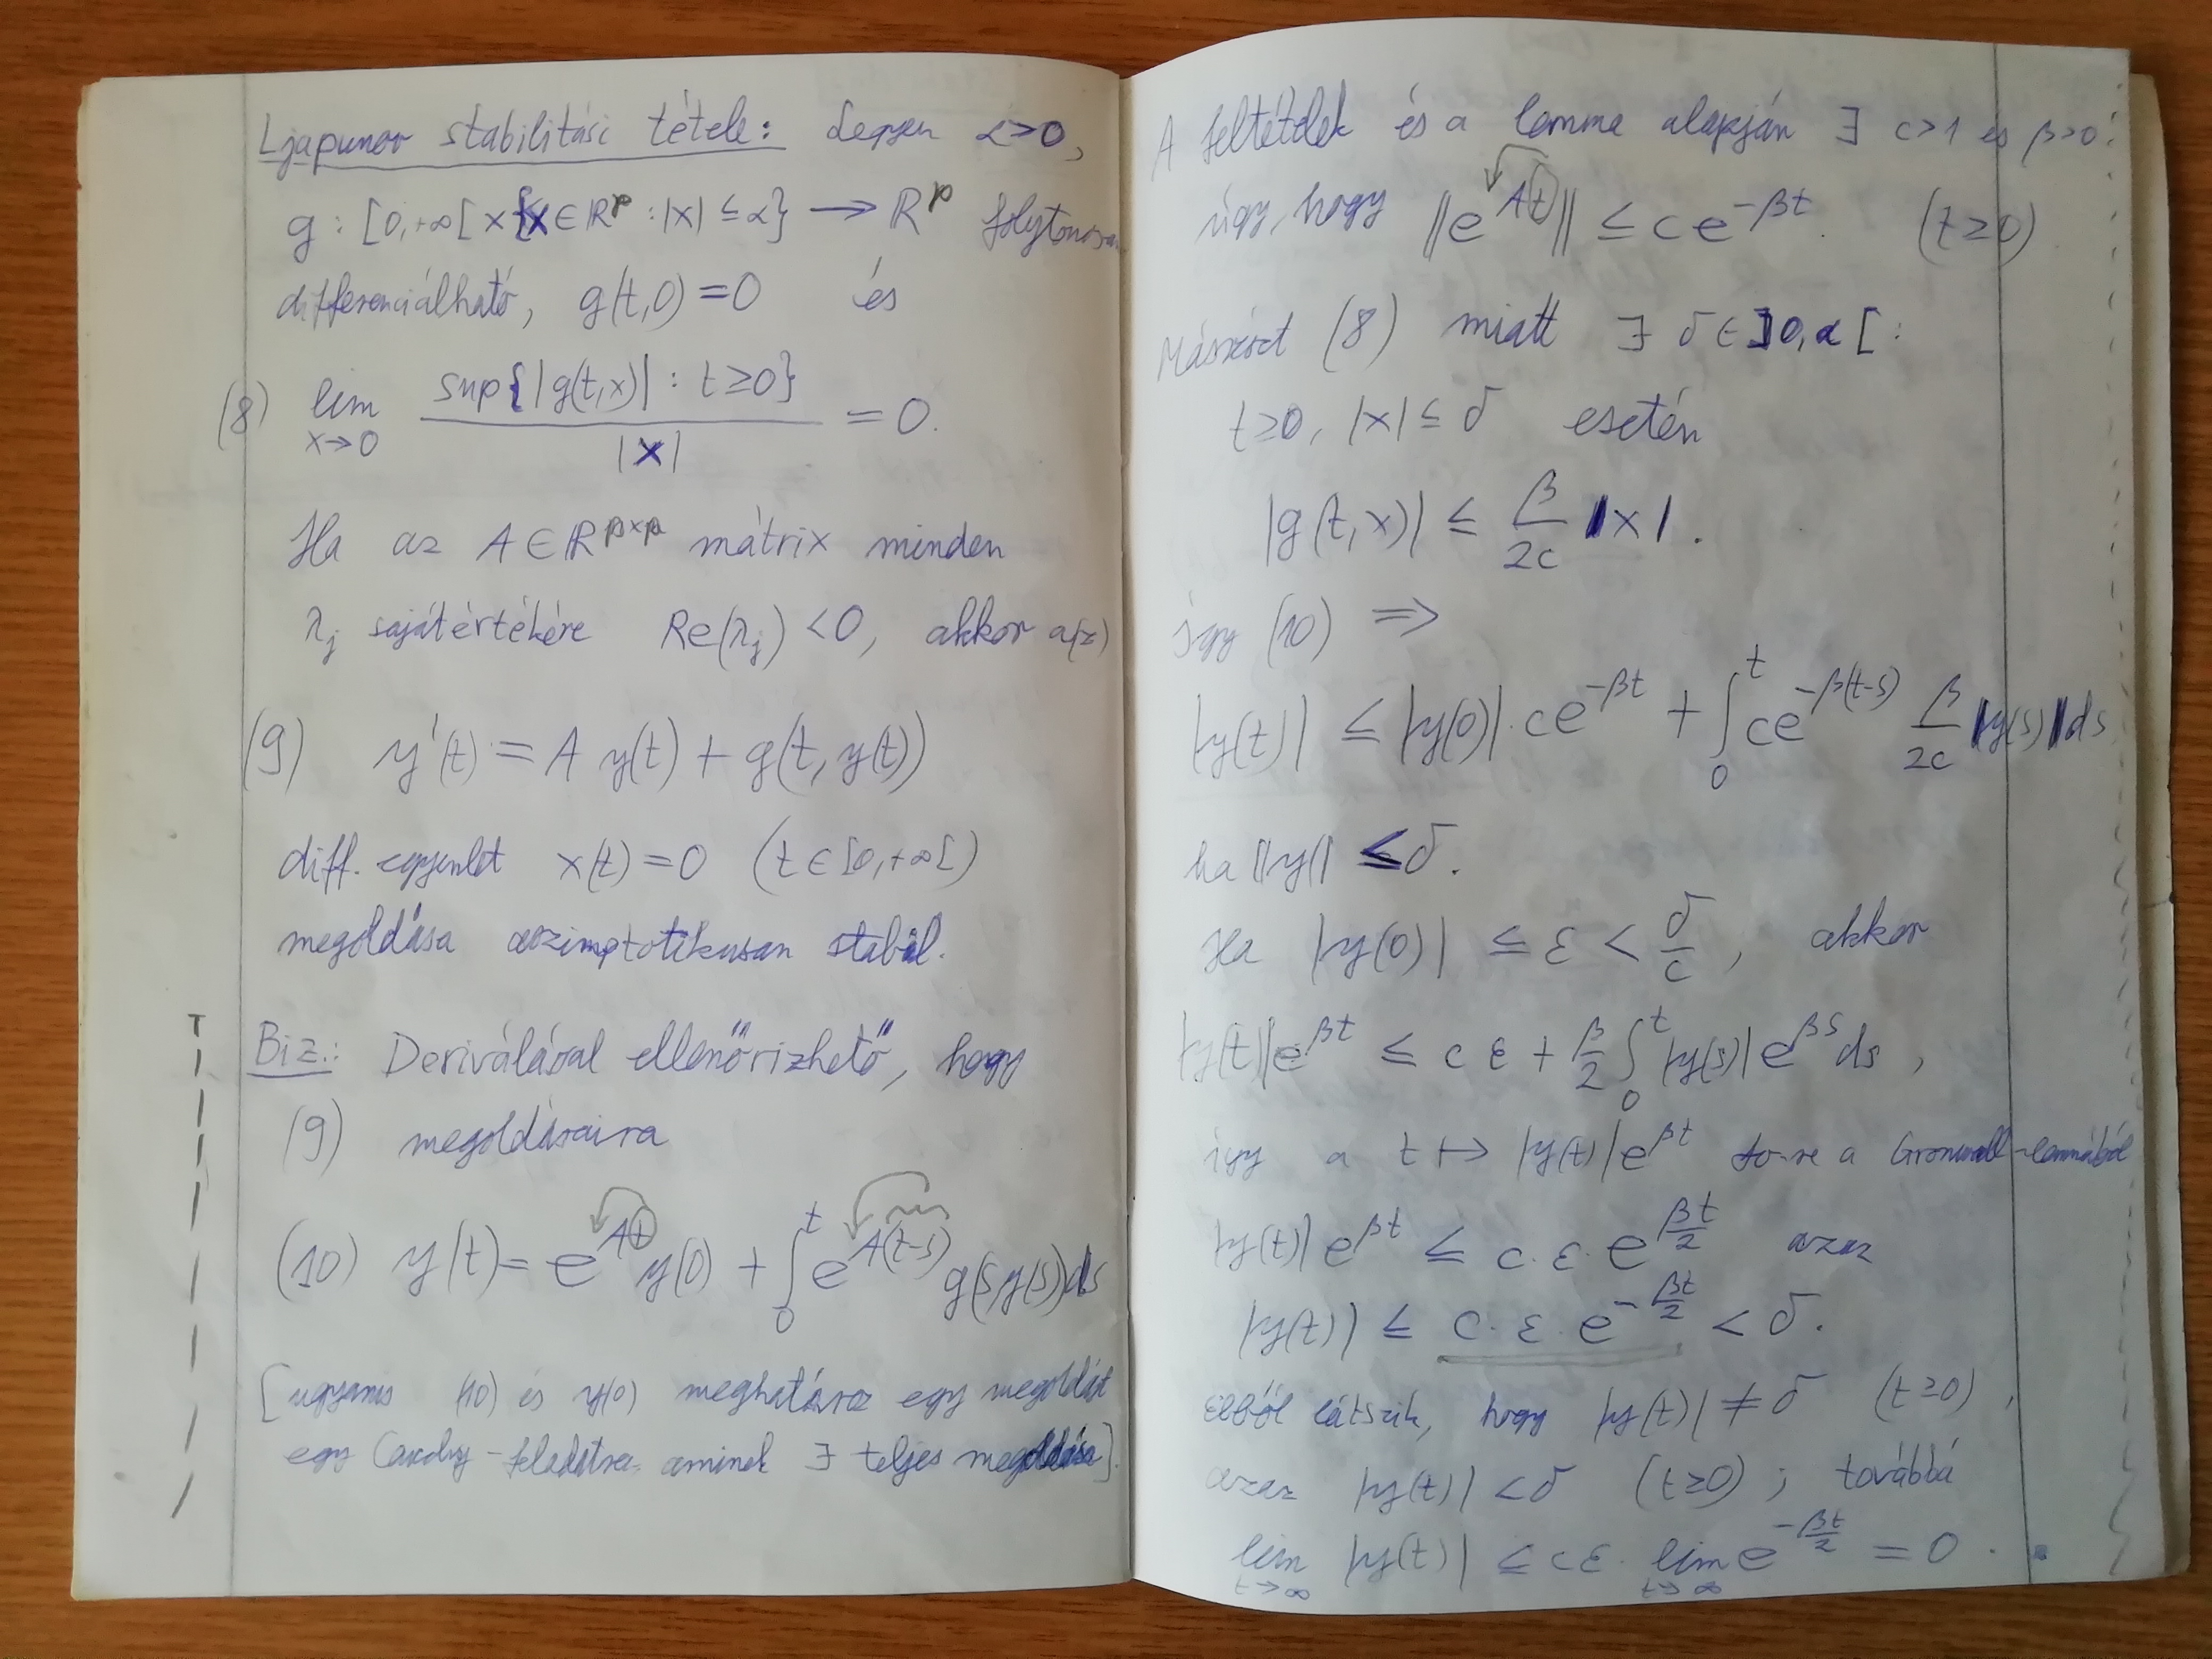 Ljapunov stabilitási tétele: Legyen α>0,
g : [0,+∞[ × {x ∈ ℝᵖ : |x| ≤ α} → ℝᵖ folytonosan
differenciálható, g(t,0) = 0 és
(8) lim_{x→0} sup{|g(t,x)| : t ≥ 0} / |x| = 0.
Ha az A ∈ ℝ^{p×p} mátrix minden
λⱼ sajátértékére Re(λⱼ) < 0, akkor a(z)
(9) y'(t) = A y(t) + g(t, y(t))
diff. egyenlet x(t) = 0 (t ∈ [0,+∞[)
megoldása aszimptotikusan stabil.
Biz.: Deriválással ellenőrizhető, hogy
(9) megoldásaira
(10) y(t) = e^{At} y(0) + ∫₀ᵗ e^{A(t-s)} g(s,y(s)) ds
[ugyanis (10) és y(0) meghatároz egy megoldást
egy Cauchy-feladatra, aminek ∃ teljes megoldása].
A feltételek és a lemma alapján ∃ c>1 és β>0:
úgy, hogy ||e^{At}|| ≤ c e^{-βt}. (t ≥ 0)
Másrészt (8) miatt ∃ δ ∈ ]0,α[ :
t ≥ 0, |x| ≤ δ esetén
|g(t,x)| ≤ β/2c |x|.
Így (10) ⇒
|y(t)| ≤ |y(0)| · c e^{-βt} + ∫₀ᵗ c e^{-β(t-s)} β/2c |y(s)| ds
ha ||y|| ≤ δ.
Ha |y(0)| ≤ ε < δ/c, akkor
|y(t)| e^{βt} ≤ c ε + β/2 ∫₀ᵗ |y(s)| e^{βs} ds,
így a t ↦ |y(t)| e^{βt} fv-re a Gronwall-lemmából
|y(t)| e^{βt} ≤ c · ε · e^{βt/2} azaz
|y(t)| ≤ c · ε · e^{-βt/2} < δ.
Ebből látszik, hogy |y(t)| ≠ δ (t ≥ 0),
azaz |y(t)| < δ (t ≥ 0); továbbá
lim_{t→∞} |y(t)| ≤ cε · lim_{t→∞} e^{-βt/2} = 0.